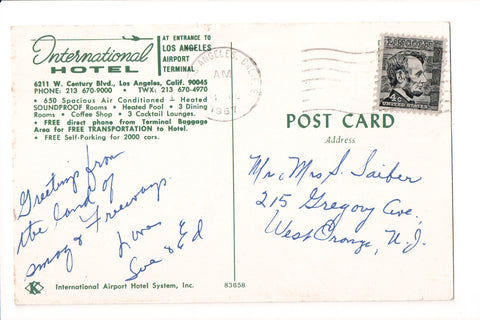 International
HOTEL
AT ENTRANCE TO
LOS ANGELES
AIRPORT
TERMINAL
6211 W. Century Blvd., Los Angeles, Calif. 90045
PHONE: 213 670-9000 • TWX: 213 670-4970
• 650 Spacious Air Conditioned & Heated
SOUNDPROOF Rooms • Heated Pool • 3 Dining
Rooms • Coffee Shop • 3 Cocktail Lounges.
• FREE direct phone from Terminal Baggage
Area for FREE TRANSPORTATION to Hotel.
• FREE Self-Parking for 2000 cars.
Greetings from
the land of
smog & Freeways.
Love
Sue & Ed
K
International Airport Hotel System, Inc.
83658
LOS ANGELES, CALIF.
AM
1967
4¢
UNITED STATES
POST CARD
Address
Mr. Mrs S. Saiber
215 Gregory Ave.
West Orange, N.J.